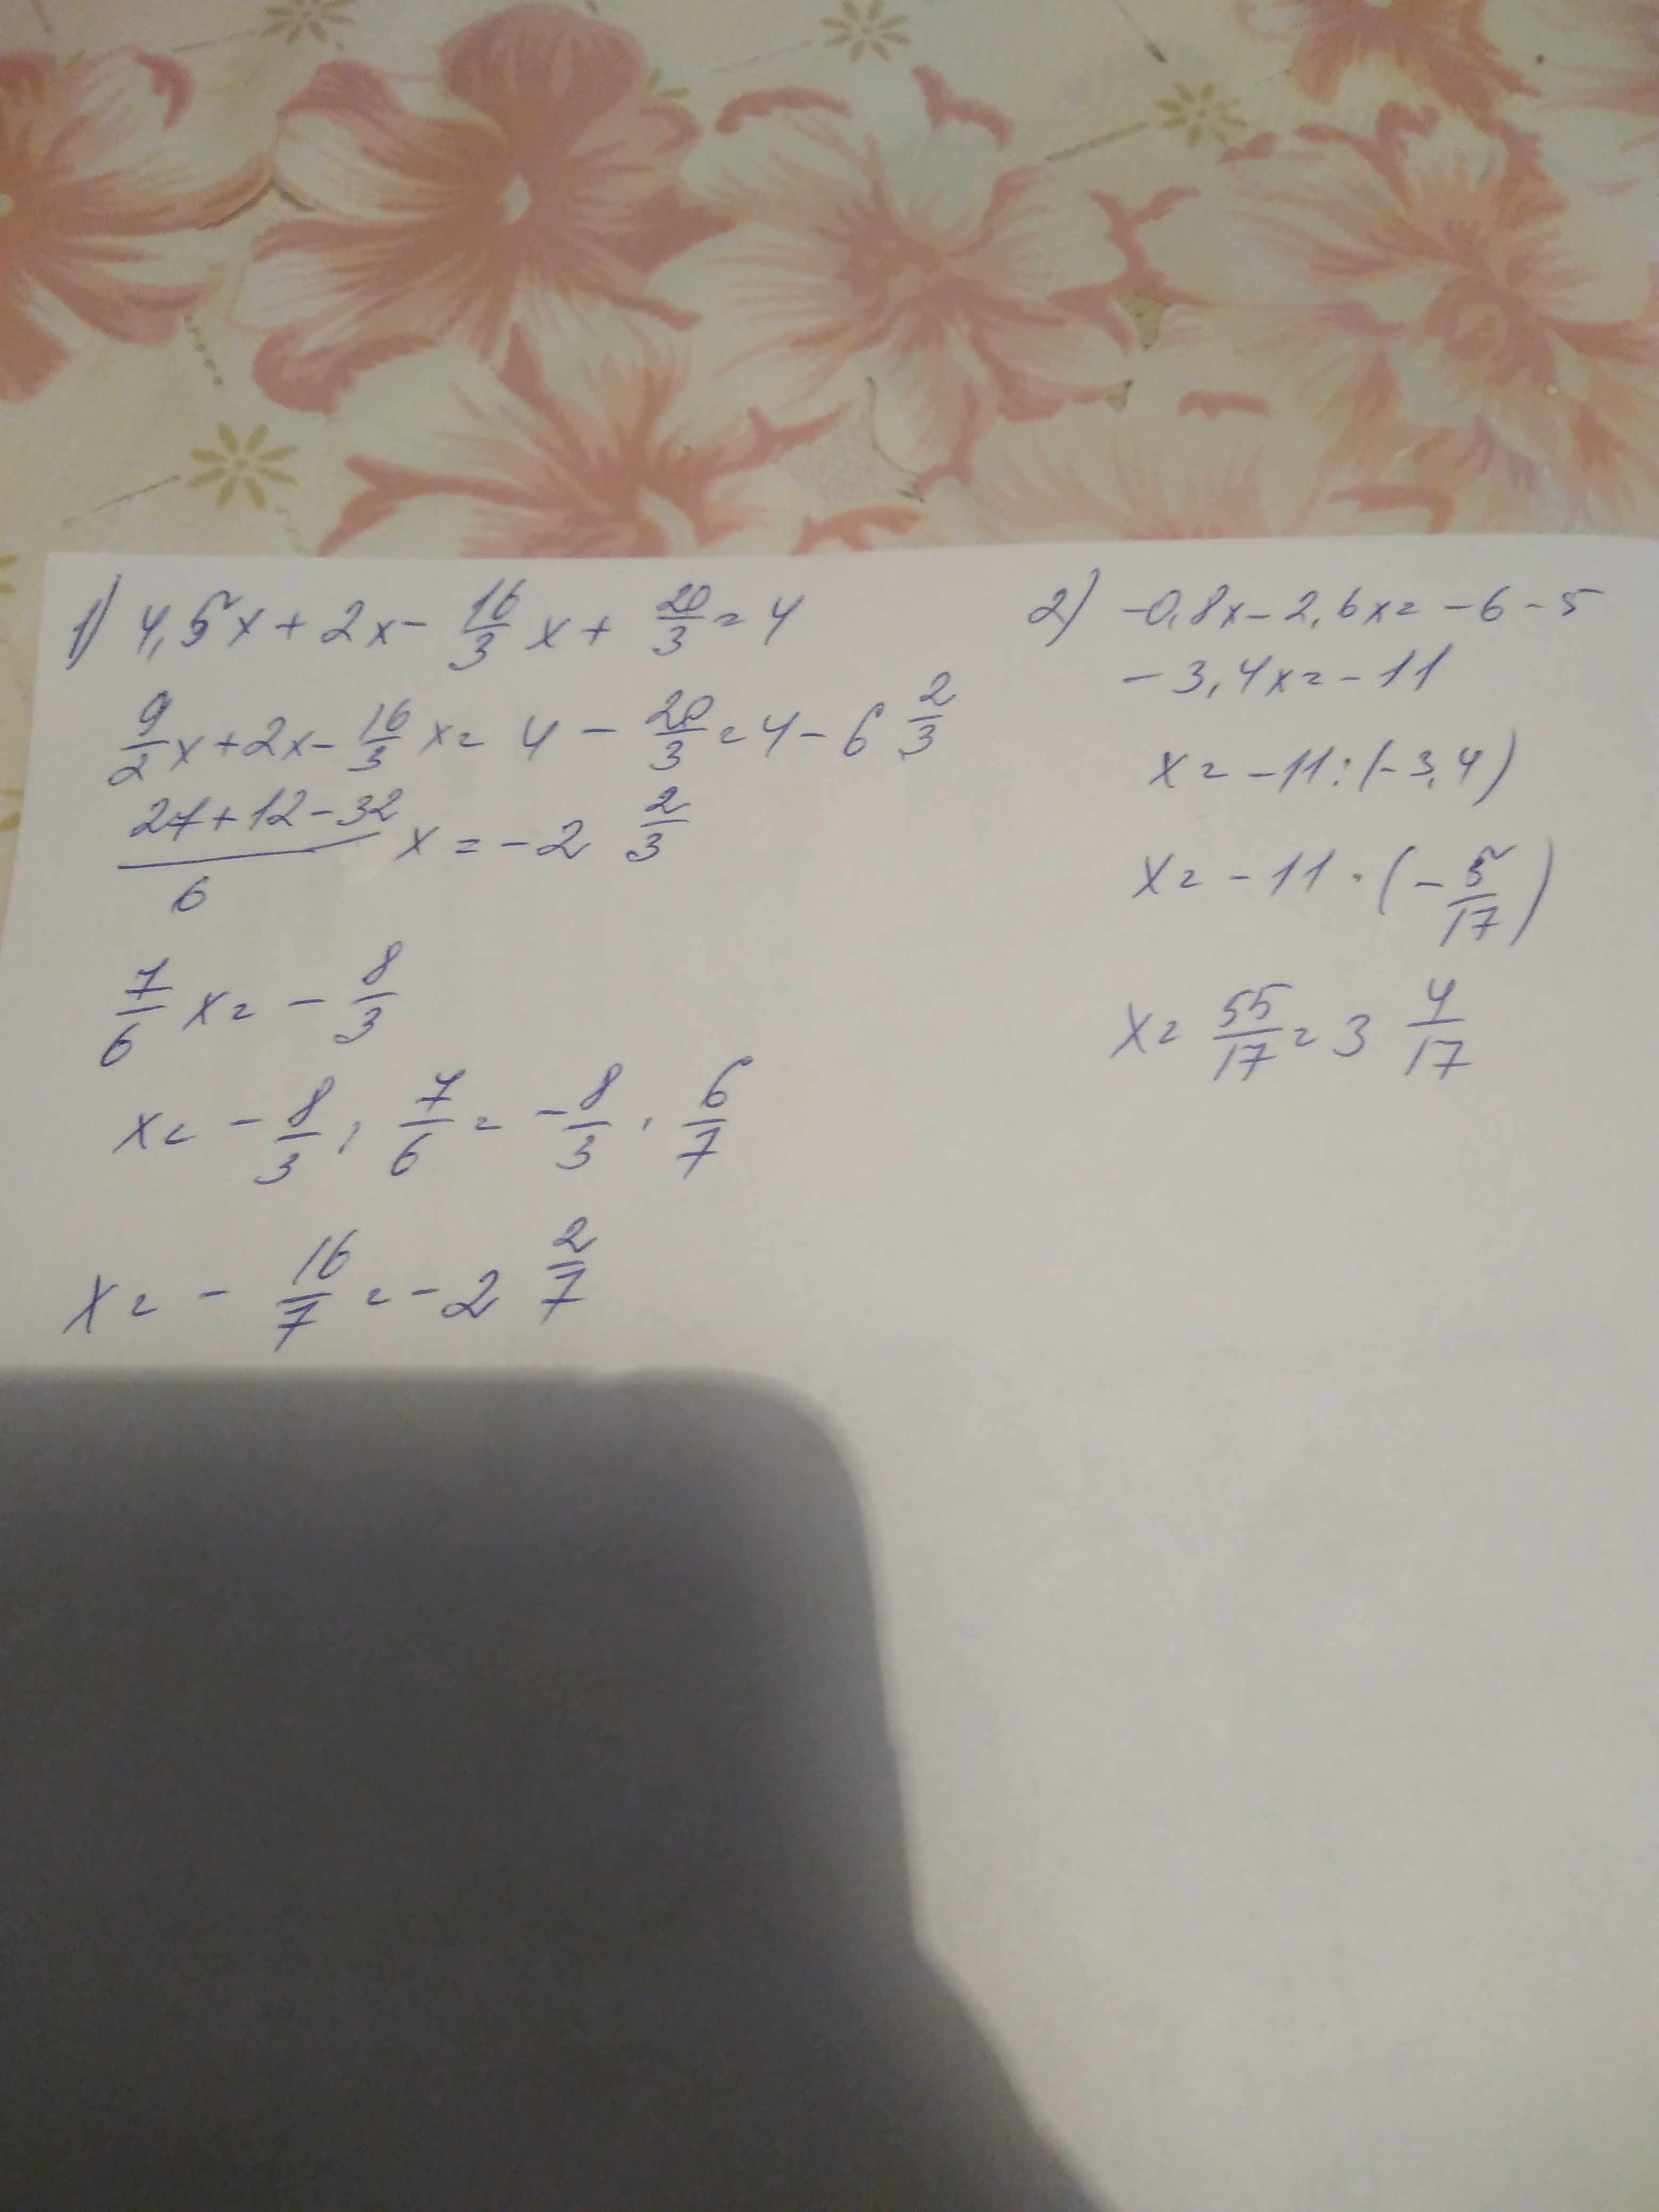 1) 4,5x + 2x - 16/3 x + 20/3 = 4
9/2 x + 2x - 16/3 x = 4 - 20/3 = 4 - 6 2/3
(27 + 12 - 32)/6 x = -2 2/3
7/6 x = - 8/3
x = - 8/3 : 7/6 = - 8/3 · 6/7
x = - 16/7 = -2 2/7
2) -0,8x - 2,6x = -6 - 5
-3,4x = -11
x = -11 : (-3,4)
x = -11 · (- 5/17)
x = 55/17 = 3 4/17